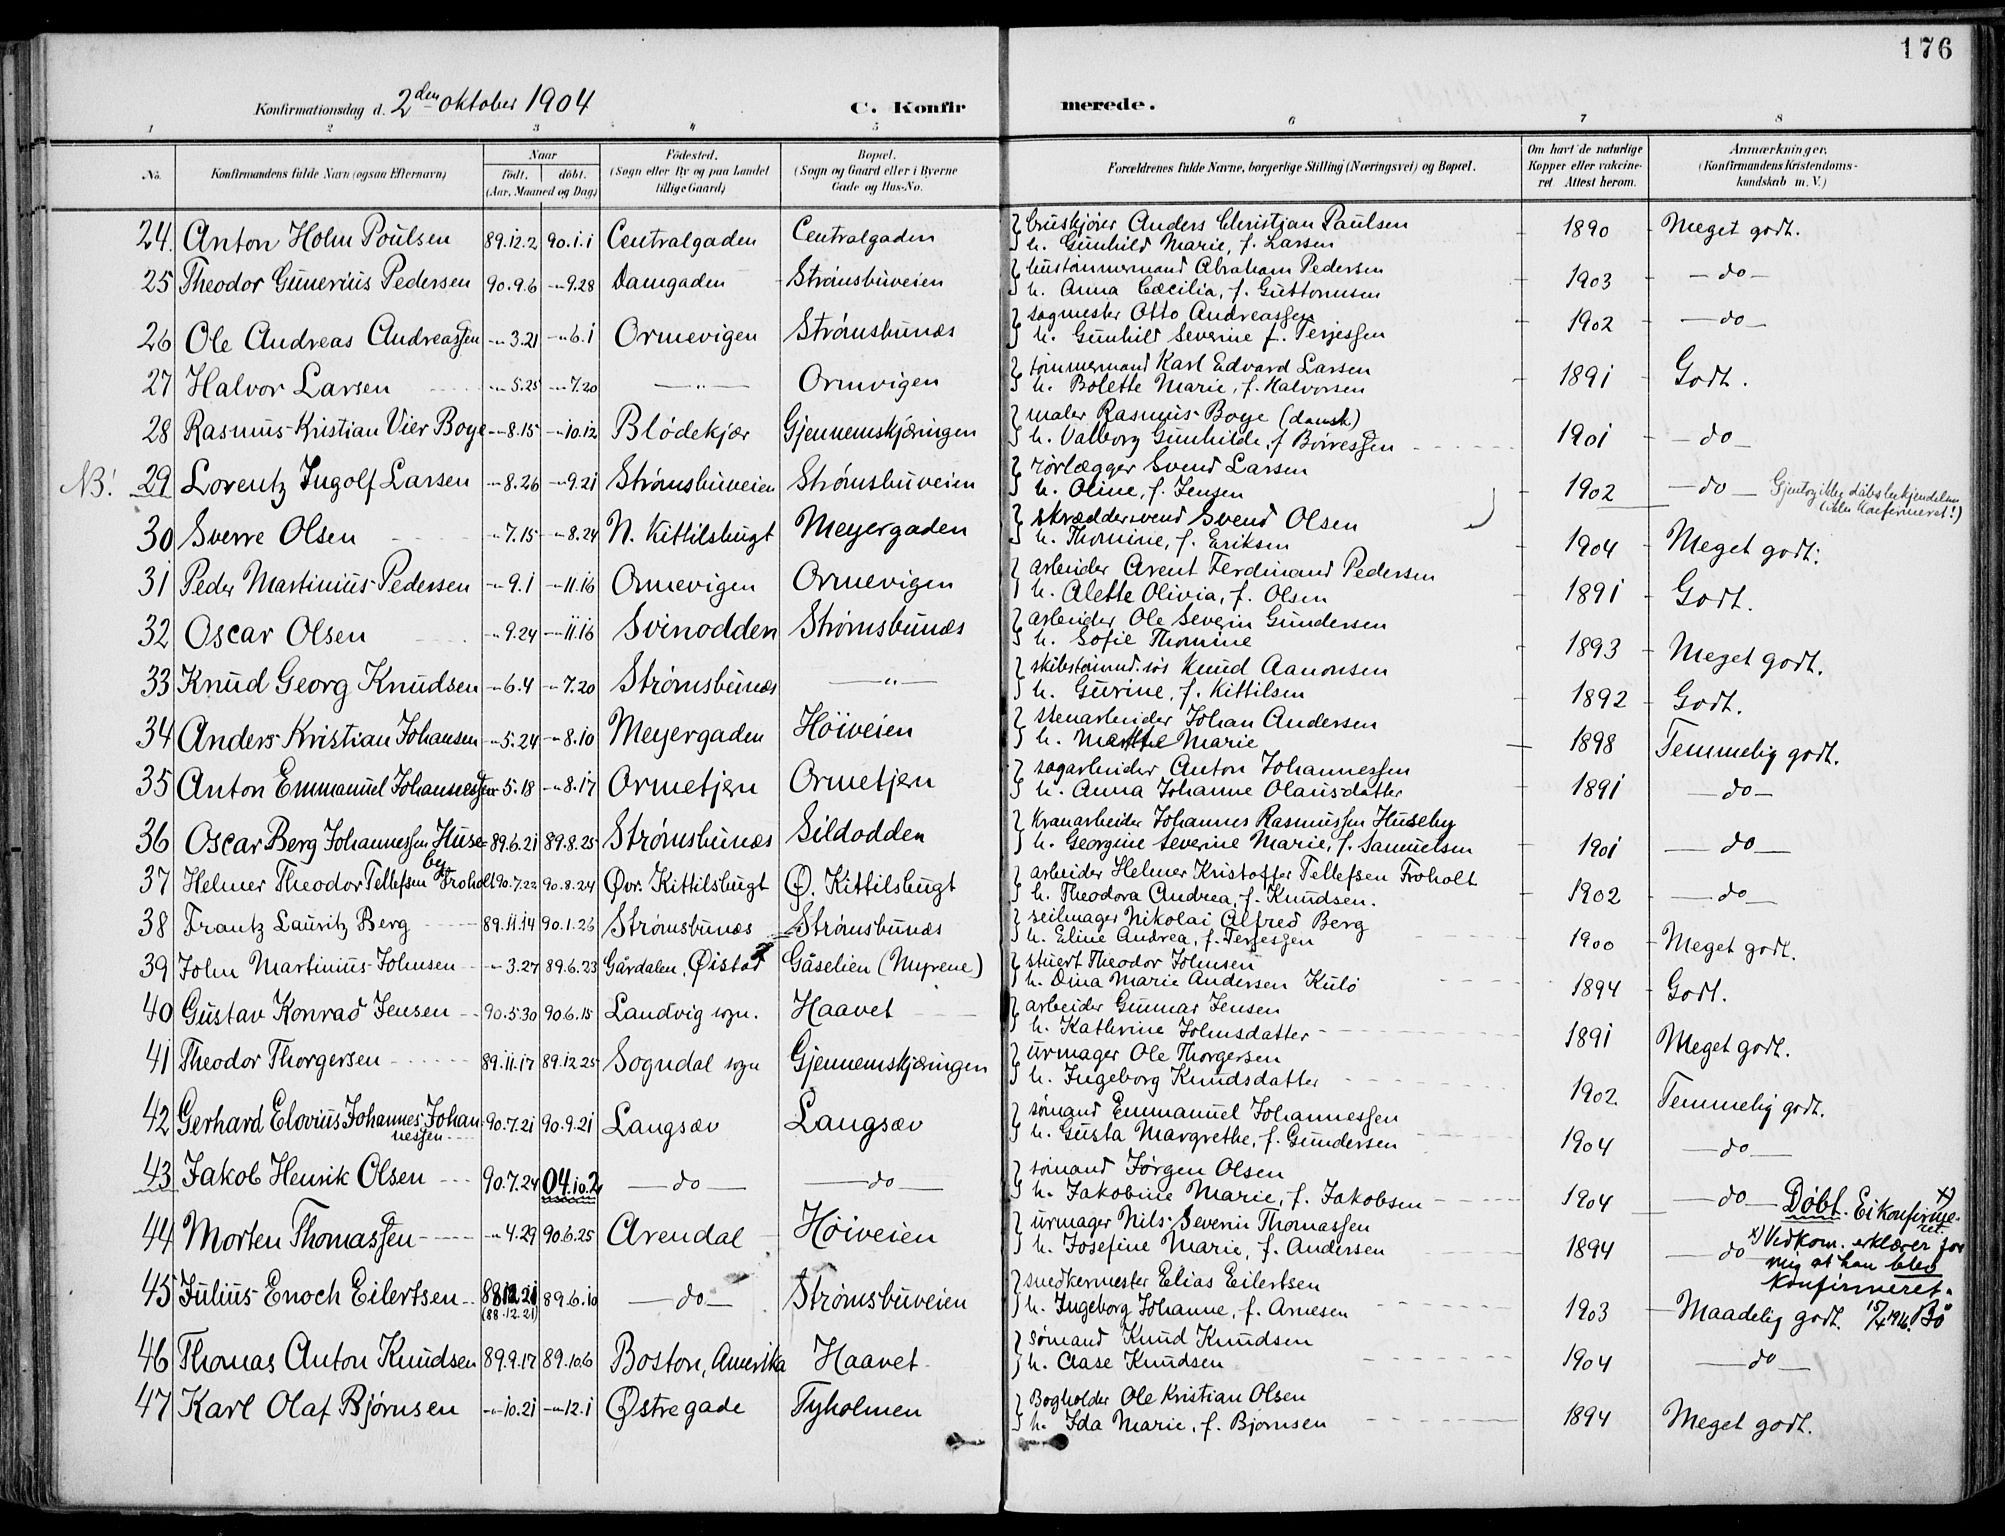 176
Konfirmationsdag d. 2den oktober 1904
C. Konfirmerede.
1 2 3 4 5 6 7 8
No. Konfirmandens fulde Navn (ogsaa Efternavn) Naar født. døbt. (Aar, Maaned og Dag) Fødested. (Sogn eller By og paa Landet tillige Gaard) Bopæl. (Sogn og Gaard eller i Byerne Gade og Hus-No. Forældrenes fulde Navne, borgerlige Stilling (Næringsvei) og Bopæl. Om havt de naturlige Kopper eller vakcineret. Attest herom. Anmærkninger, (Konfirmandens Kristendomskundskab m. V.)
24. Anton Holm Poulsen 89.12.2 90.1.1 Centralgaden Centralgaden buskjører Anders Christian Paulsen 1890 Meget godt.
h. Gunhild Marie, f. Larsen
25 Theodor Gunerius Pedersen 90.9.6 -"-9.28 Damgaden Strømsbuveien hustømmermand Abraham Pedersen 1903 -do-
h. Anna Cæcilia, f. Guttormsen
26 Ole Andreas Andreassen -"-3.21 -"-6.1 Ormevigen Strømsbunæs sagmester Otto Andreassen 1902 -do-
h. Gunhild Severine f. Terjessen
27 Halvor Larsen -"-5.25 -"-7.20 -"- Ormvigen tømmermand Karl Edvard Larsen 1891 Godt.
h. Bolette Marie, f. Halvorsen
28 Rasmus Kristian Vier Boye -"-8.15 -"-10.12 Blødekjær Gjennemskjæringen maler Rasmus Boye (dansk) 1901 -do-
h. Valborg Gunhilde, f Børresen
NB! 29 Lorentz Ingolf Larsen -"-8.26 -"-9.21 Strømsbuveien Strømsbuveien rørlægger Svend Larsen 1902 -do- Gjentog ikke dåbsbekjendelsen
h. Oline, f. Jensen (ikke konfirmeret!)
30 Sverre Olsen -"-7.15 -"-8.24 N. Kittilsbugt Meyergaden skræddersvend Svend Olsen 1904 Meget godt.
h. Thomine, f. Eriksen
31 Peder Martinius Pedersen -"-9.1 -"-11.16 Ormevigen Ormevigen arbeider Arent Ferdinand Pedersen 1891 Godt.
h. Alette Olivia, f. Olsen
32 Oscar Olsen -"-9.24 -"-11.16 Svinodden Strømsbunæs arbeider Ole Severin Gundersen 1893 Meget godt.
h. Sofie Thomine
33 Knud Georg Knudsen -"-6.4 -"-7.20 Strømsbunæs -"- Knud Aanonsen 1892 Godt.
h. Gurine, f. Kittilsen
34 Anders Kristian Johansen -"-5.24 -"-8.10 Meyergaden Høiveien stenarbeider Johan Andersen 1898 Temmelig godt.
h. Marthe Marie
35 Anton Emmanuel Johannessen -"-5.18 -"-8.17 Ormetjern Ormetjern sagarbeider Anton Johannessen 1891 -do-
h. Anna Johanne Olausdatter
36 Oscar Berg Johannessen Huseby 89.6.21 89.8.25 Strømsbunæs Sildodden Kranarbeider Johannes Rasmussen Huseby 1901 -do-
h. Georgine Severine Marie, f. Samuelsen
37 Helmer Theodor Tellefsen Froholt 90.7.22 90.8.24 Øvr. Kittilsbugt Ø. Kittilsbugt arbeider Helmer Kristoffer Tellefsen Froholt 1902 -do-
h. Theodora Andrea, f. Knudsen.
38 Frantz Lauritz Berg 89.11.14 90.1.26 Strømsbunæs Strømsbunæs seilmager Nikolai Alfred Berg 1900 Meget godt.
h. Eline Andrea, f. Terjessen
39 John Martinius Johnsen -"-3.27 89.6.23 Gårdalen, Øistad Gåselien (Myrene) stuert Theodor Johnsen 1894 Godt.
h. Dina Marie Andersen Kulø
40 Gustav Konrad Jensen 90.5.30 90.6.15 Landvig sogn. Haavet arbeider Gunnar Jensen 1891 Meget godt.
h. Kathrine Johnsdatter
41 Theodor Thorgersen 89.11.17 89.12.25 Sogndal sogn Gjennemskjæringen urmager Ole Thorgersen 1902 Temmelig godt.
h. Ingeborg Knudsdatter
42 Gerhard Elovius Johannes Johannessen 90.7.21 90.9.21 Langsæv Langsæv sømand Emmanuel Johannessen 1904 -do-
h. Gusta Margrethe, f. Gundersen
43 Jakob Henrik Olsen 90.7.24 04.10.2 -do- -do- sømand Jørgen Olsen 1904 -do- Døbt. Ei konfirmeret x)
h. Jakobine Marie, f. Jakobsen
44 Morten Thomassen -"-4.29 90.6.25 Arendal Høiveien urmager Nils Severin Thomassen 1894 -do- x) Vedkom. erklærer for mig at han blev konfirmeret.
h. Josefine Marie, f. Andersen 15/4 1916. Bö
45 Julius Enoch Eilertsen 88.12.21 (88.12.21) 89.6.10 -do- Strømsbuveien snedkermester Elias Eilertsen 1903 Maadelig godt.
h. Ingeborg Johanne, f. Arnesen
46 Thomas Anton Knudsen 89.9.17 89.10.6 Boston, Amerika Haavet sømand Knud Knudsen 1904 -do-
h. Aase Knudsen
47 Karl Olaf Bjørnsen -"-10.21 -"-12.1 Østregade Tyholmen Bogholder Ole Kristian Olsen 1894 Meget godt.
h. Ida Marie, f. Bjørnsen